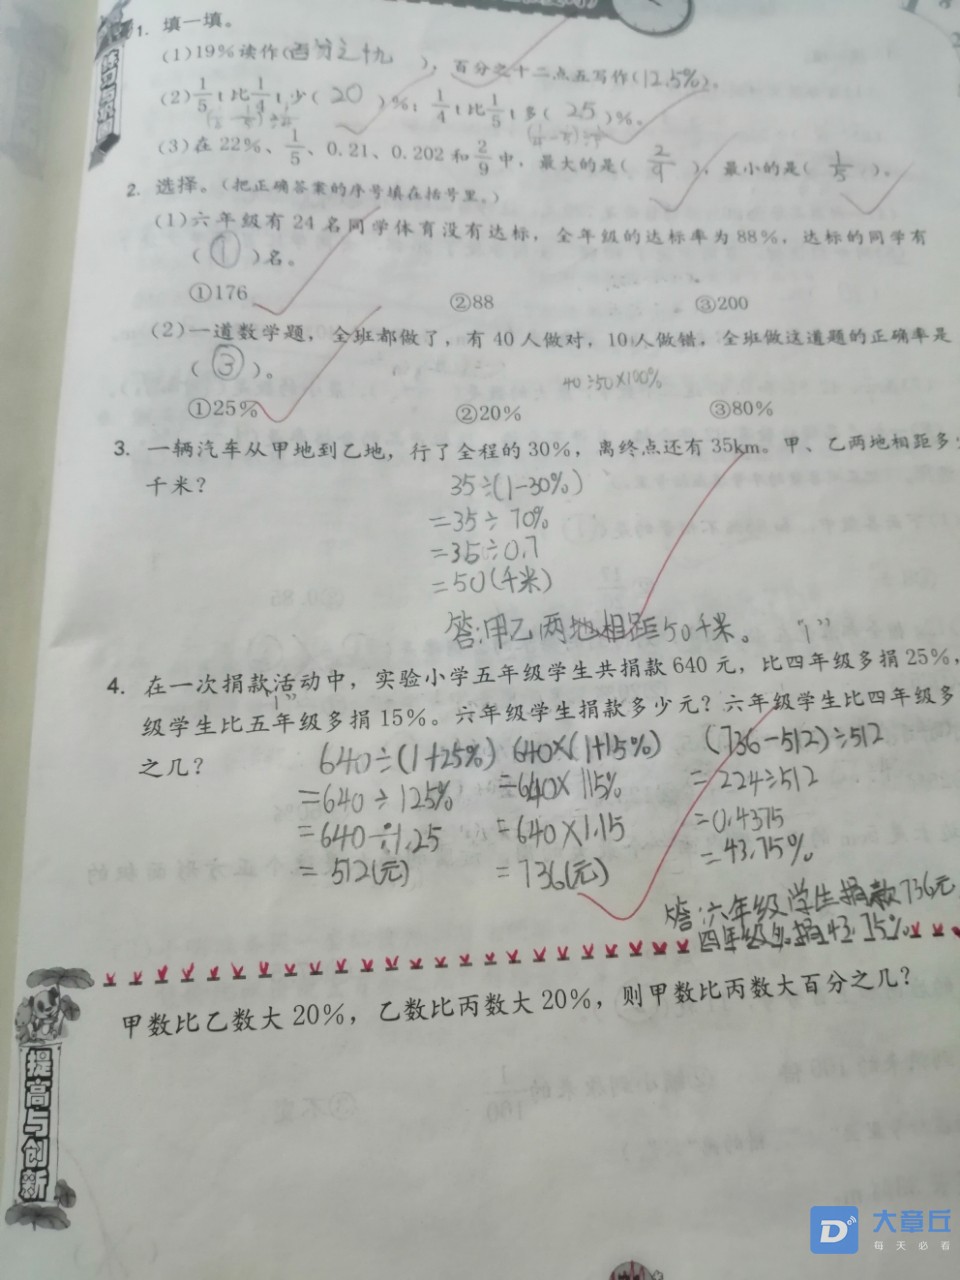 1. 填一填。
(1)19%读作(百分之十九)，百分之十二点五写作(12.5%)。
(2)1/5 t比1/4 t少(20)%；1/4 t比1/5 t多(25)%。
(3)在22%、1/5、0.21、0.202和2/9中，最大的是(2/9)，最小的是(1/5)。
2. 选择。(把正确答案的序号填在括号里。)
(1)六年级有24名同学体育没有达标，全年级的达标率为88%，达标的同学有
(①)名。
①176 ②88 ③200
(2)一道数学题，全班都做了，有40人做对，10人做错，全班做这道题的正确率是
(③)。
40÷50×100%
①25% ②20% ③80%
3. 一辆汽车从甲地到乙地，行了全程的30%，离终点还有35km。甲、乙两地相距多
千米？
35÷(1-30%)
=35÷70%
=35÷0.7
=50(千米)
答:甲乙两地相距50千米。 "1"
4. 在一次捐款活动中，实验小学五年级学生共捐款640元，比四年级多捐25%，
"1"
级学生比五年级多捐15%。六年级学生捐款多少元？六年级学生比四年级多
之几？
640÷(1+25%) 640×(1+15%) (736-512)÷512
=640÷125% =640×115% =224÷512
=640÷1.25 =640×1.15 =0.4375
=512(元) =736(元) =43.75%
答:六年级学生捐款736元
四年级多捐43.75%
甲数比乙数大20%，乙数比丙数大20%，则甲数比丙数大百分之几？
提高与创新
大章丘
每天必看